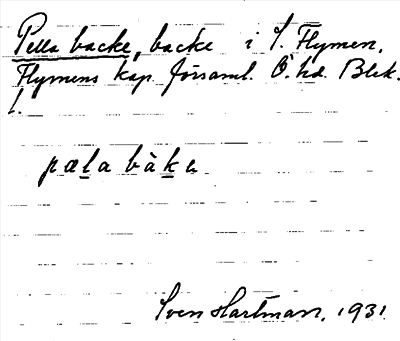 Pella backe, backe i S. Flymen,
Flymens kap. församl. Ö. hd. Blek.
l.
pæla bàkɐ
Sven Hartman, 1931